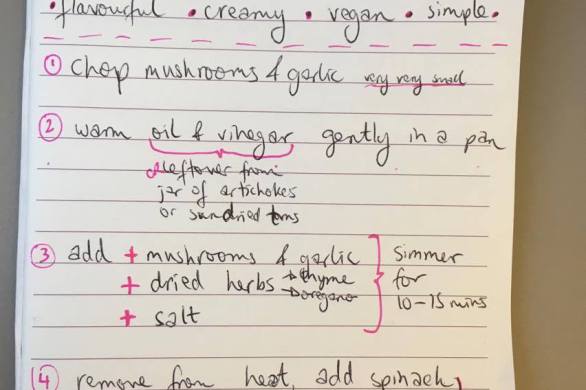 • flavourful • creamy • vegan • simple •
① chop mushrooms & garlic very very small
② warm oil & vinegar gently in a pan
leftover from
jar of artichokes
or sundried toms
③ add + mushrooms & garlic
+ dried herbs → thyme
→ oregano
+ salt
simmer
for
10-15 mins
④ remove from heat, add spinach,